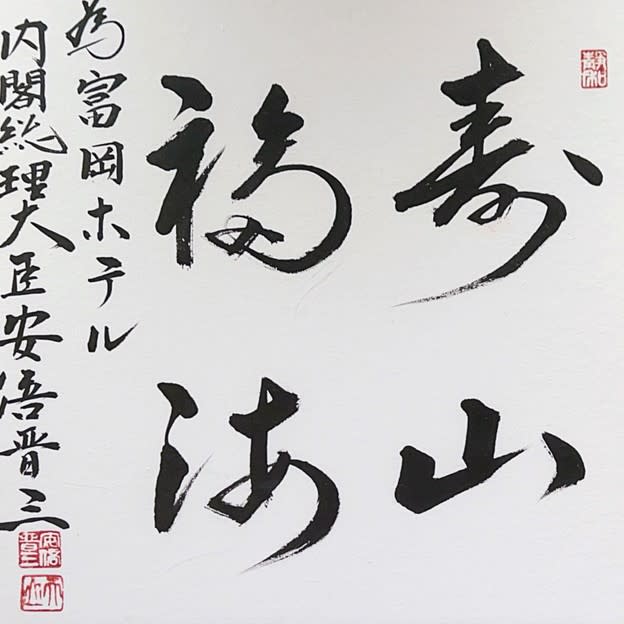 寿山
福海
為富岡ホテル
内閣総理大臣安倍晋三